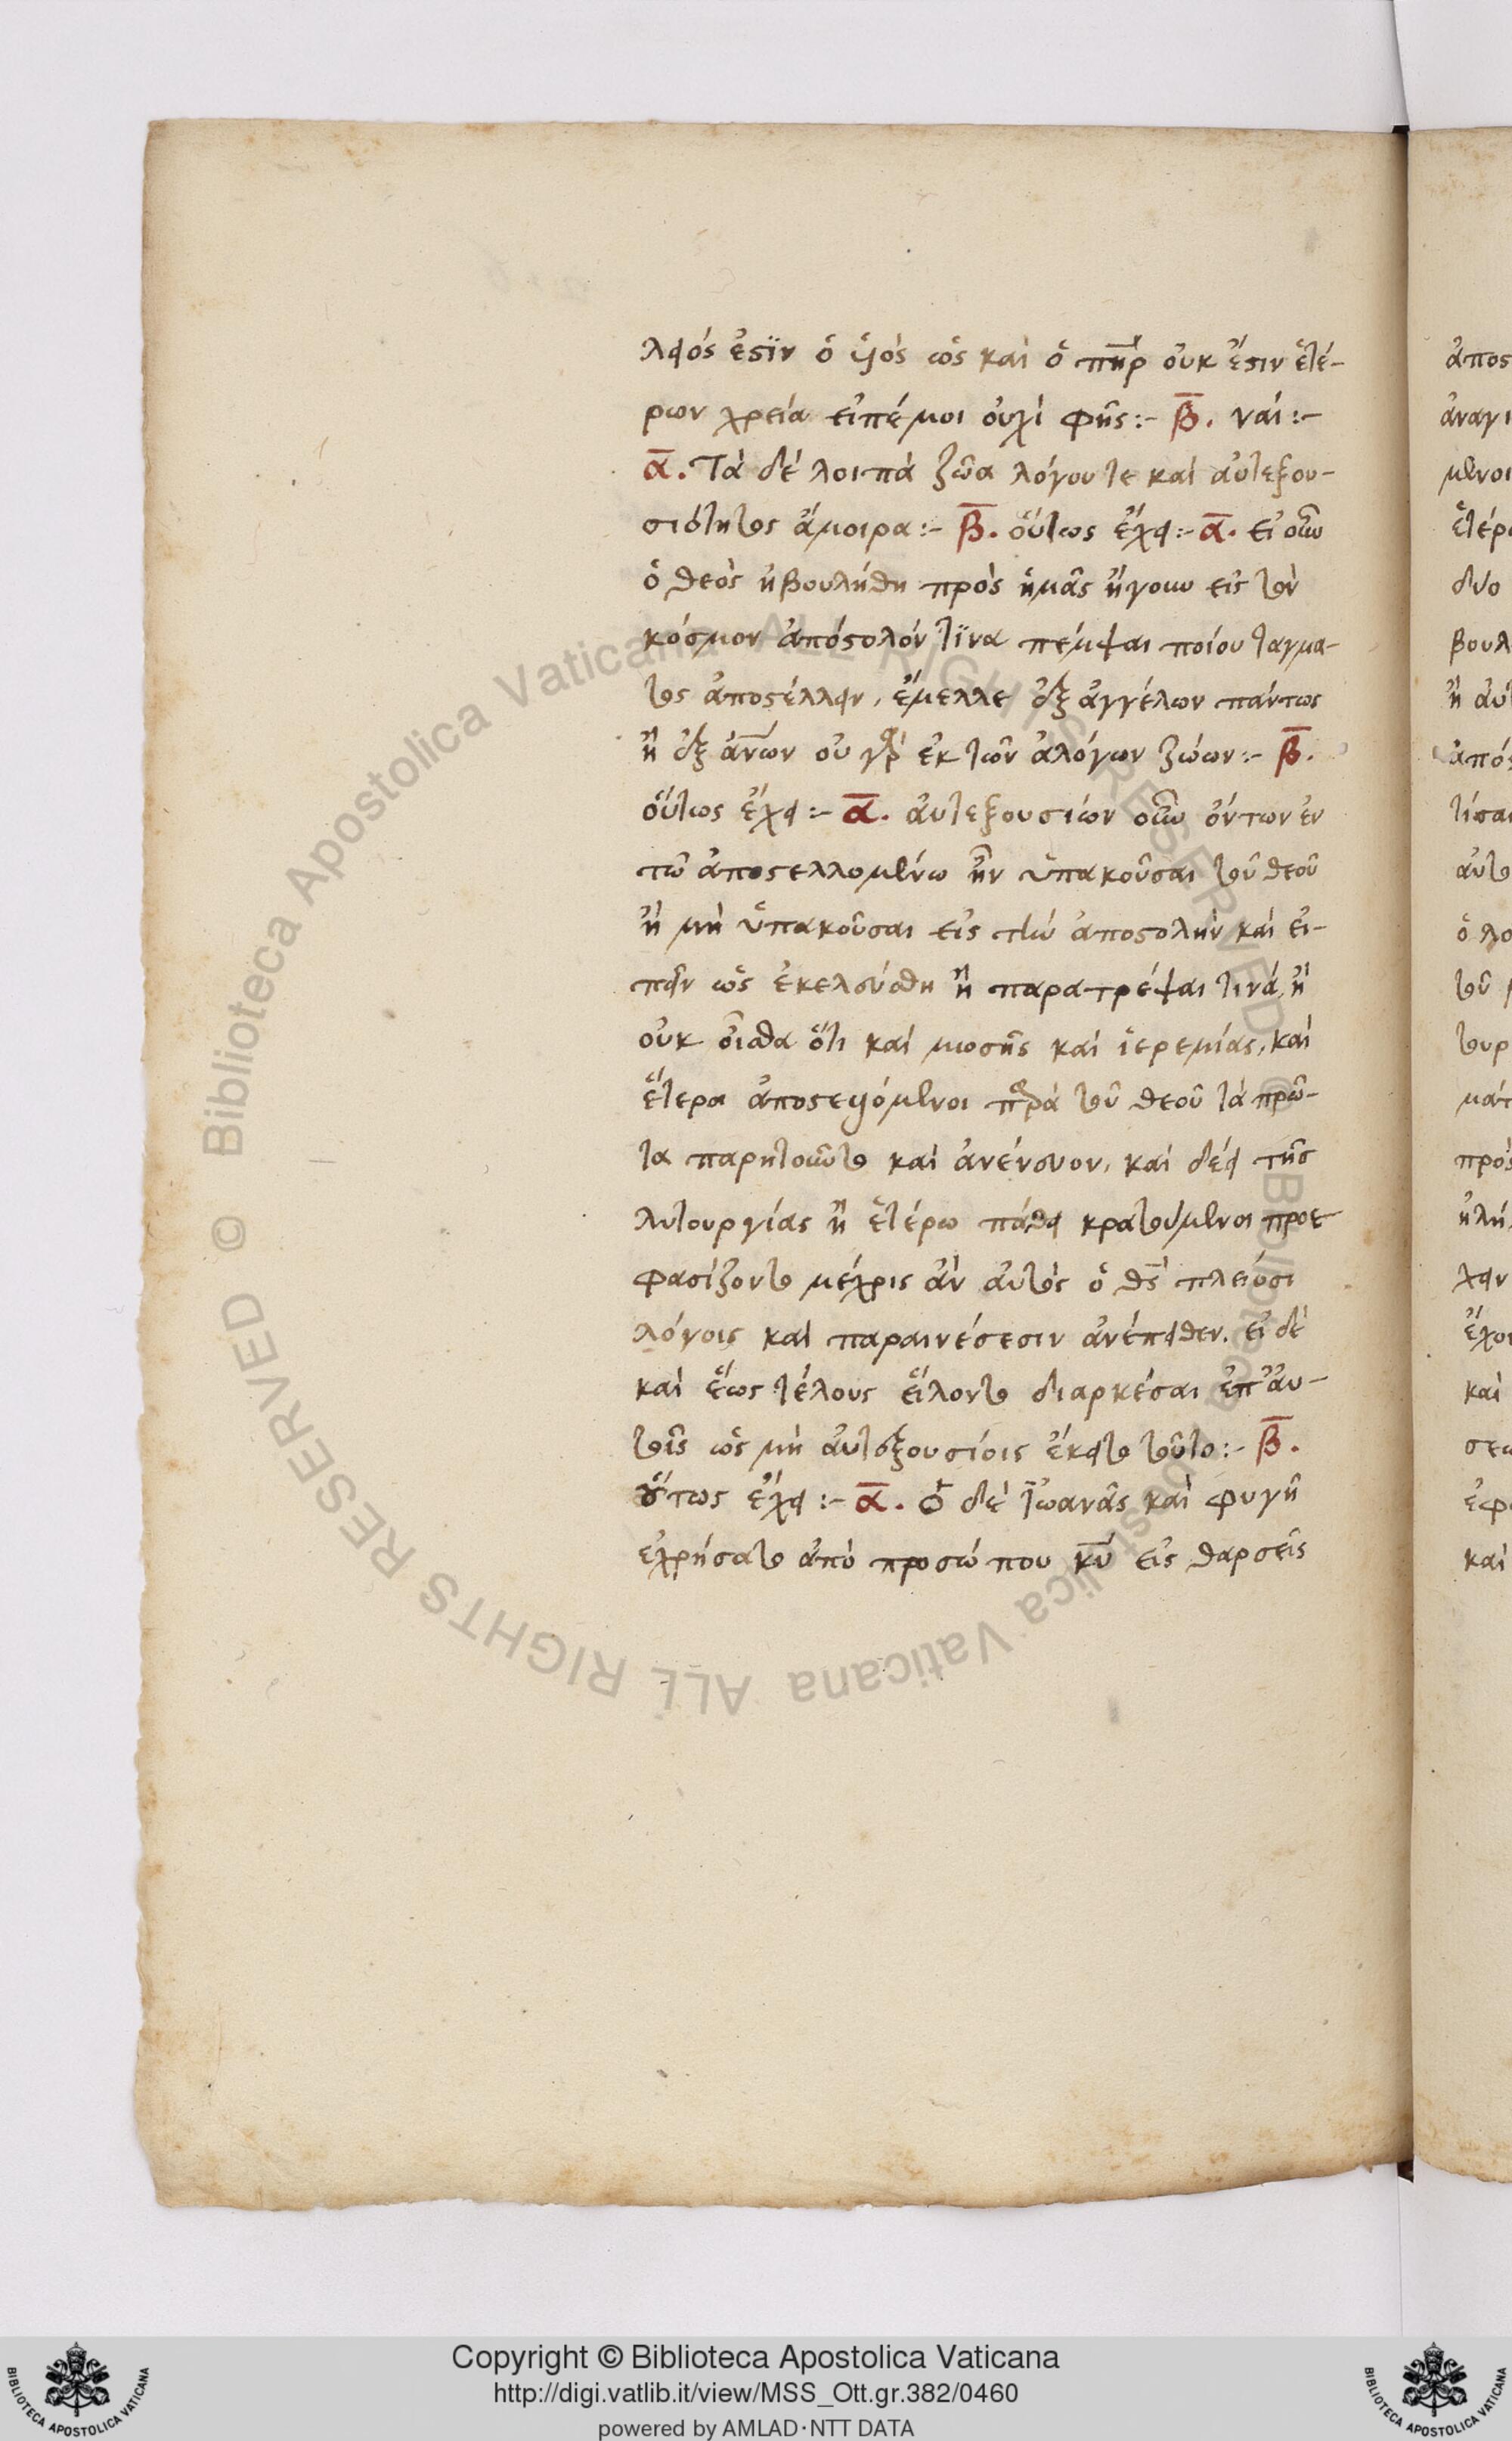 λφός ἐστϊν ὁ ὑιὸς ὡς καὶ ὁ πη̅ρ οὐκ ἔστιν ἑτέ-
ρων χρεία εἰπέ μοι οὐχὶ φῂς :- β̅. ναί :-
α̅. Τὰ δὲ λοιπὰ ζῶα λόγου τε καὶ αὐτεξου-
σιότητος ἄμοιρα :- β̅. οὕτως ἔχει :- α̅. εἰ οὖν
ὁ θεὸς ἠβουλήθη πρὸς ἡμᾶς ἤγουν εἰς τὸν
κόσμον ἀπόστολόν τϊνα πέμψαι ποίου τάγμα-
τος ἀποστέλλειν, ἔμελλε ἐξ ἀγγέλων πάντως
ἢ ἐξ ἀν̅ων οὐ γὰρ ἐκ τῶν ἀλόγων ζώων :- β̅.
οὕτως ἔχει :- α̅. αὐτεξουσίων οὖν ὄντων ἐν
τῶ ἀποστελλομένω ἦν ὑπακοῦσαι τοῦ θεοῦ
ἢ μὴ ὑπακοῦσαι εἰς τὴν ἀποστολὴν καὶ εἰ-
πεῖν ὡς ἐκελεύσθη ἢ παρατρέψαι τινὰ, ἢ
οὐκ οἶσθα ὅτι καὶ μωσῆς καὶ ἱερεμίας, καὶ
ἕτεροι ἀποστελλόμενοι παρὰ τοῦ θεοῦ τὰ πρῶ-
τα παρητοῦντο καὶ ἀνένευον, καὶ δέει τῆς
λυτουργίας ἢ ἑτέρω πάθει κρατούμενοι προε
φασίζοντο μέχρις ἂν αὐτὸς ὁ θ̅ς πλείοσι
λόγοις καὶ παραινέσεσιν ἀνέπειθεν. εἰ δὲ
καὶ ἕως τέλους εἵλοντο διαρκέσαι ἐπ' αὐ-
τοῖς ὡς μὴ αὐτεξουσίοις ἔκειτο τοῦτο :- β̅.
οὕτως ἔχει :- α̅. ὁ δὲ ϊωανᾶς καὶ φυγῆ
ἐχρήσατο ἀπὸ προσώπου κ̅υ εἰς θαρσεῖς
Copyright © Biblioteca Apostolica Vaticana
http://digi.vatlib.it/view/MSS_Ott.gr.382/0460
powered by AMLAD·NTT DATA